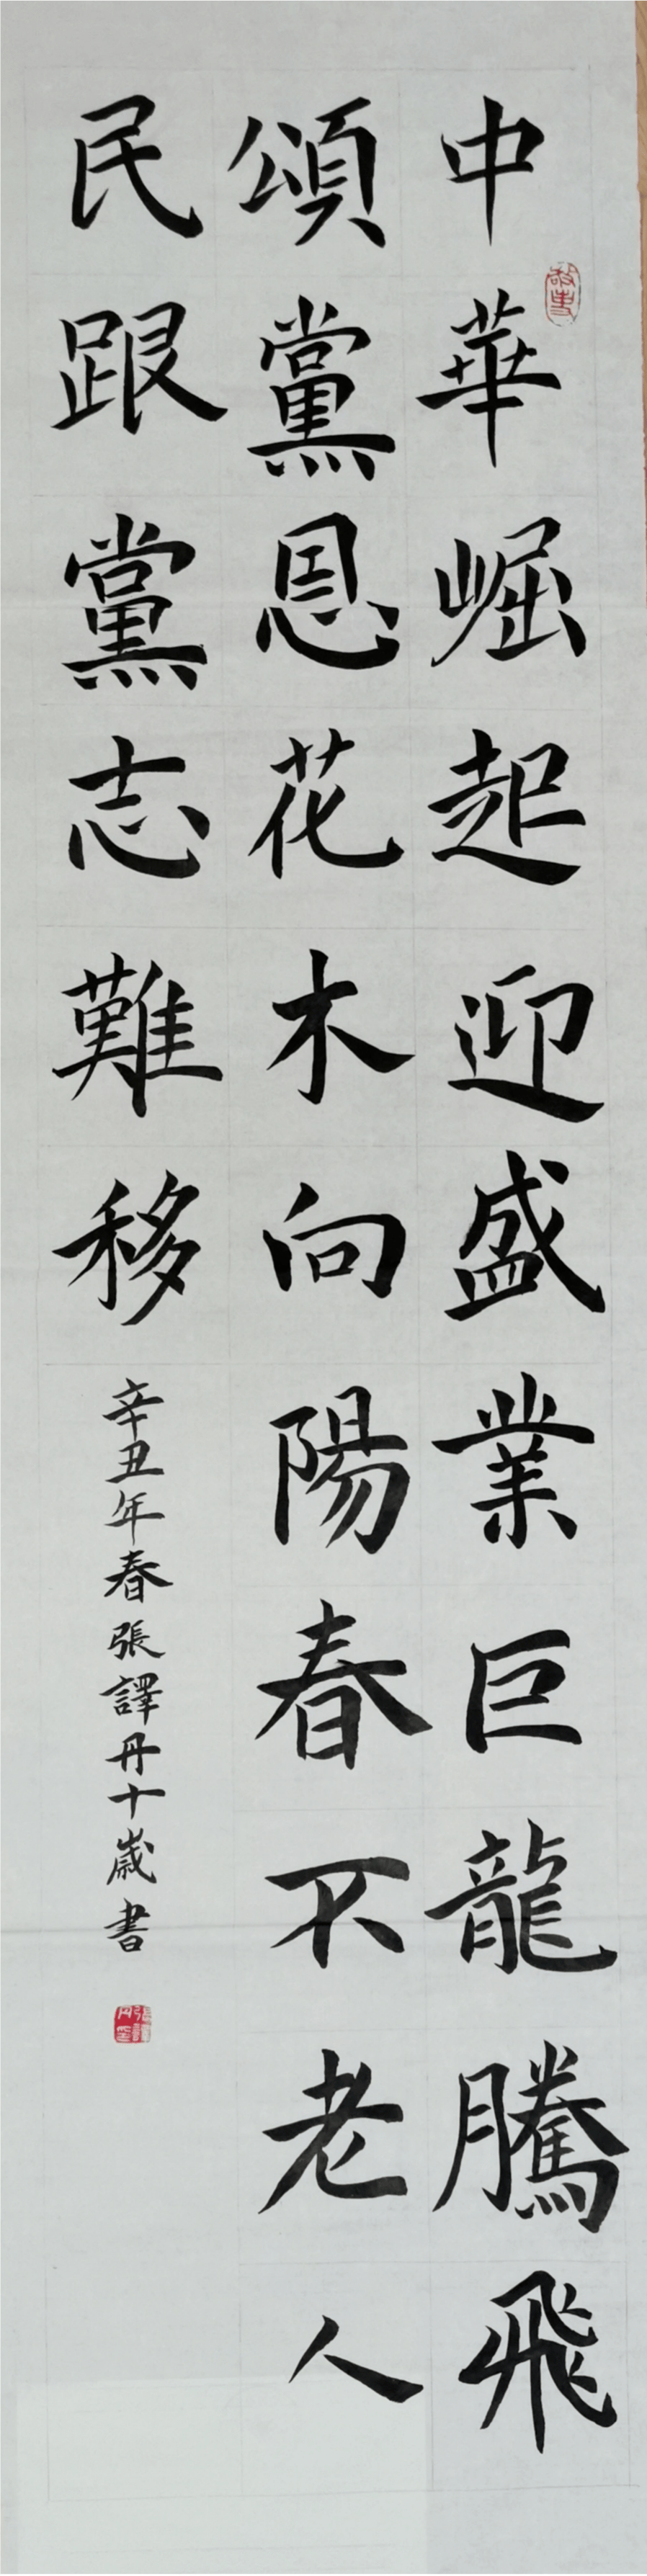 中華崛起迎盛業巨龍騰飛
頌黨恩花木向陽春不老人
民跟黨志難移
辛丑年春張譯丹十歲書